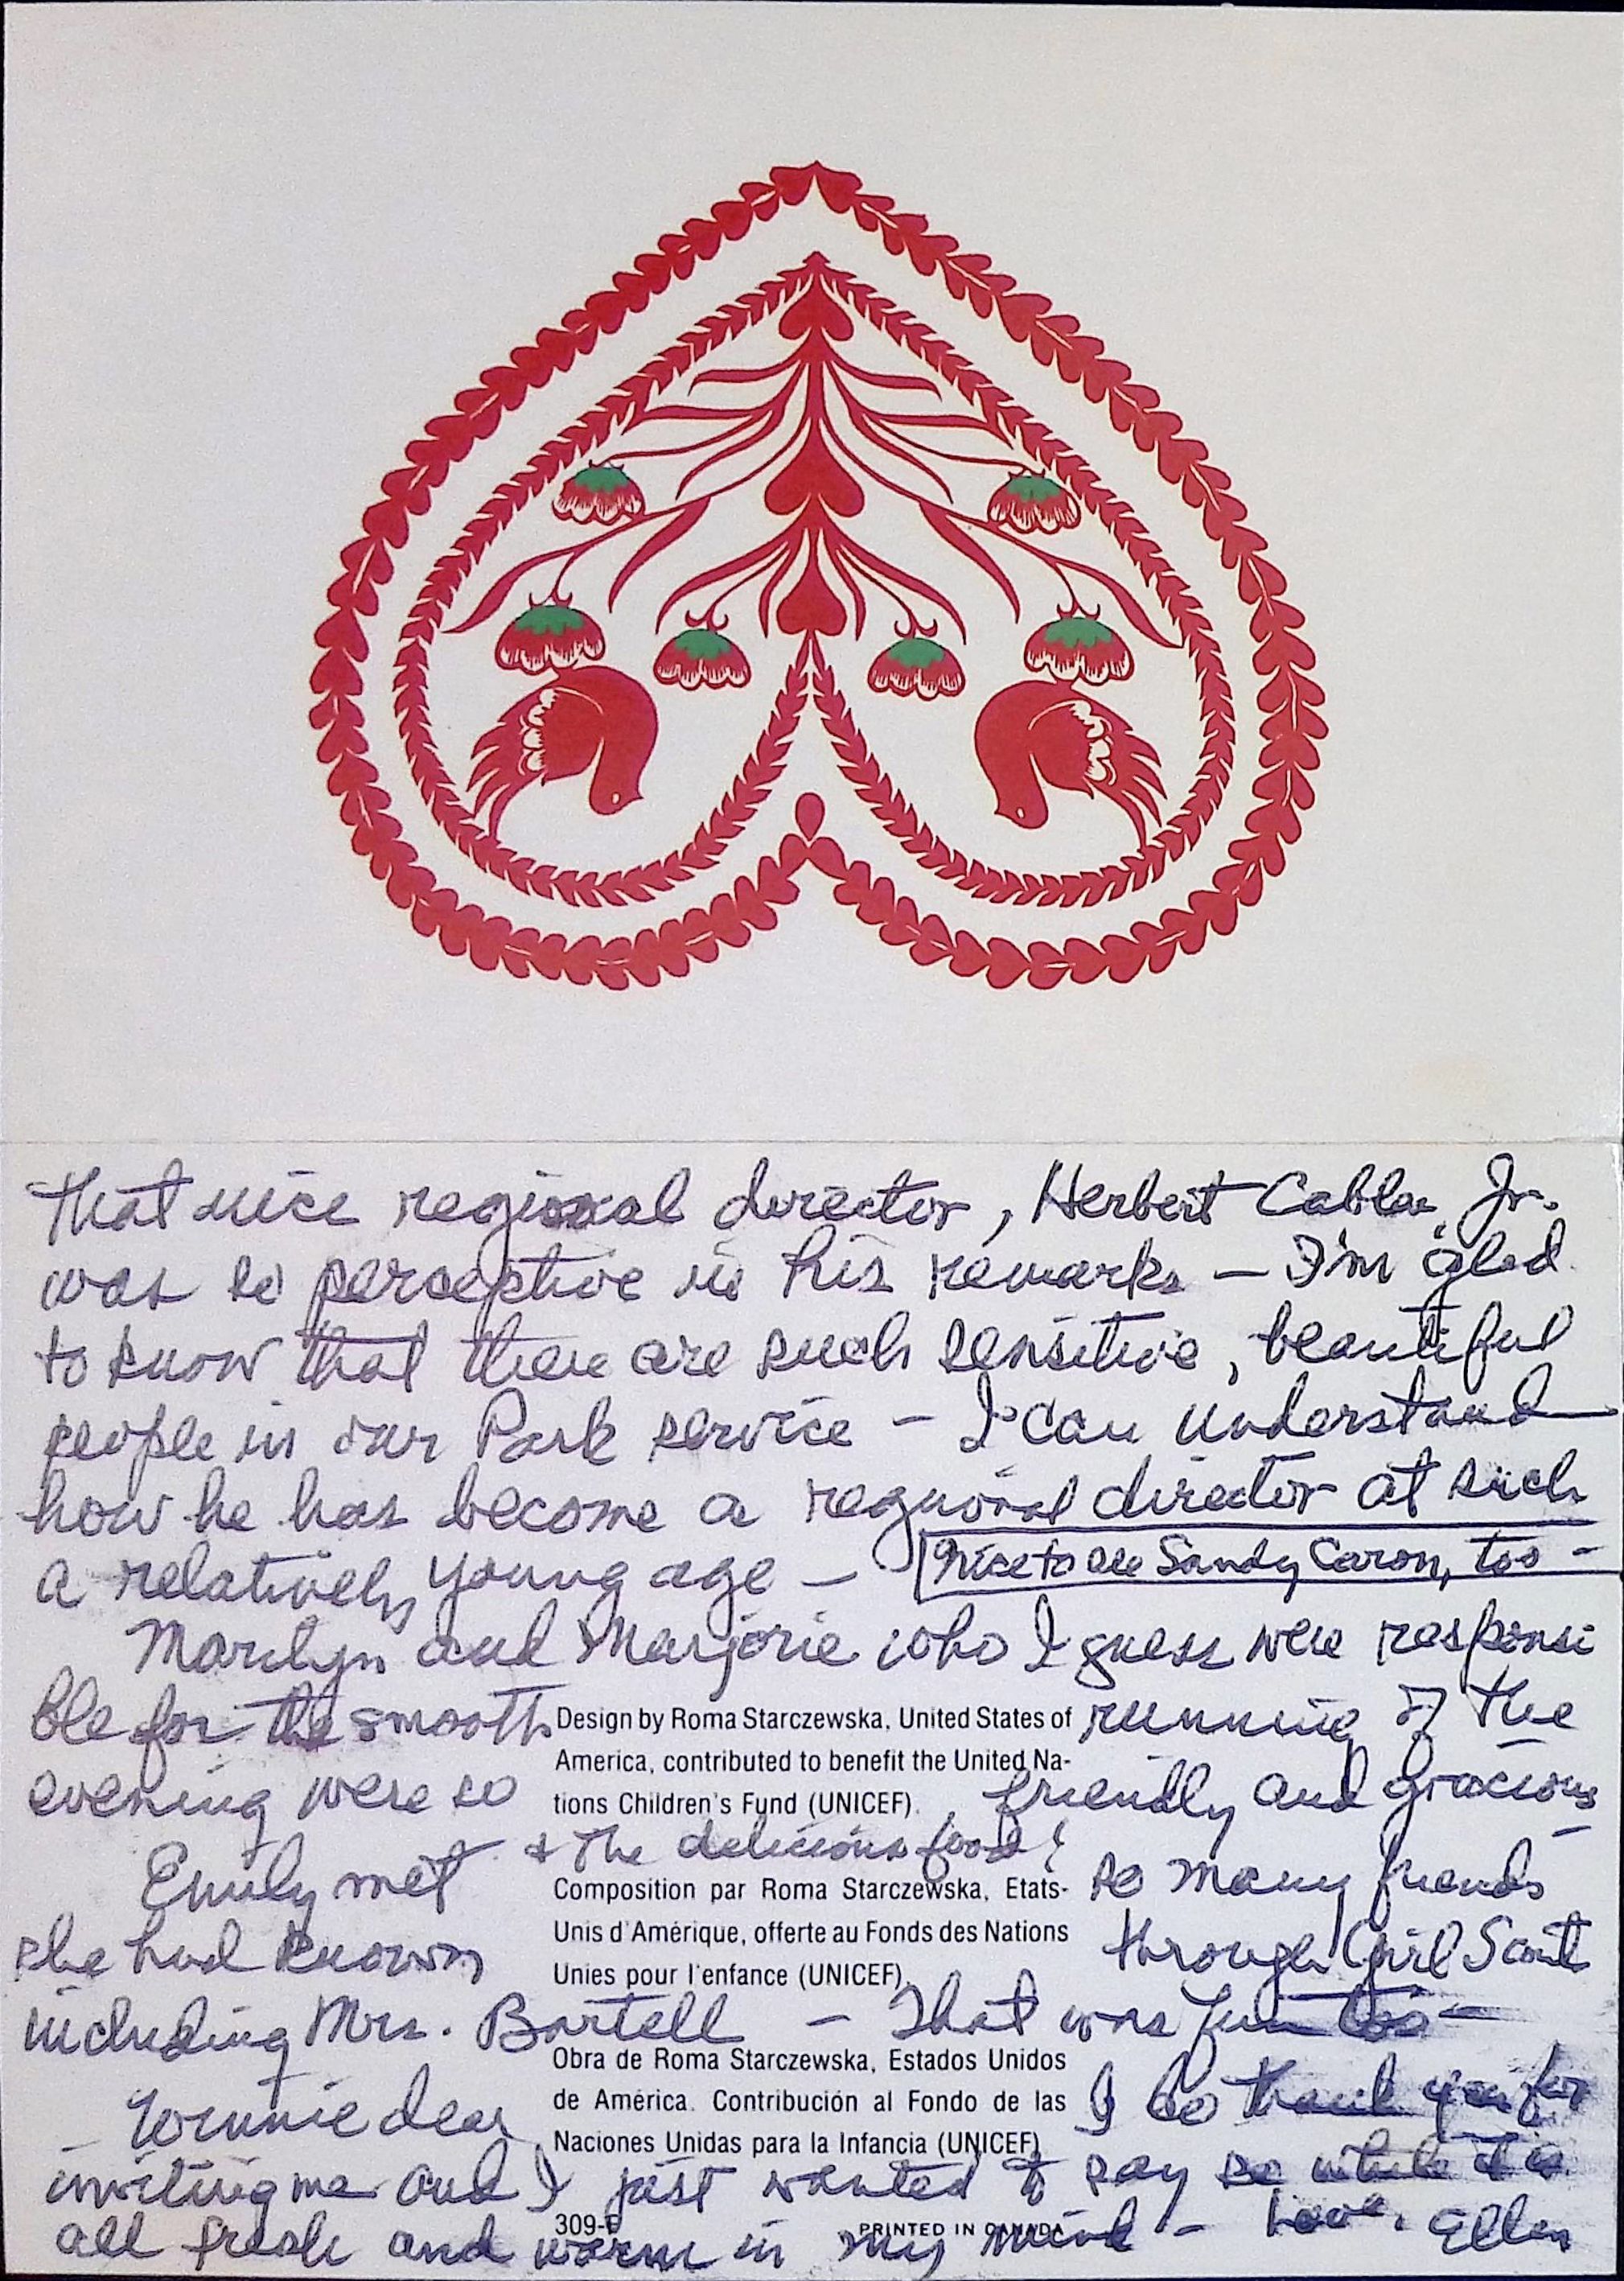 that nice regional director, Herbert Cables, Jr.
was so perceptive in his remarks — I'm glad
to know that there are such sensitive, beautiful
people in our Park service – I can understand
how he has become a regional director at such
a relatively young age — Nice to see Sandy Caron, too –
Marilyn and Marjorie who I guess were responsi
ble for the smooth running of the
evening were so friendly and gracious –
+ the delicious food!
Emily met so many friends
she had known through Girl Scout
including Mrs. Bartell – That was fun too –
dear I do thank you for
inviting me and I just wanted to say so while it is
all fresh and warm in my mind – Love, Ellen
Design by Roma Starczewska, United States of
America, contributed to benefit the United Na-
tions Children's Fund (UNICEF).
Composition par Roma Starczewska, Etats-
Unis d'Amérique, offerte au Fonds des Nations
Unies pour l'enfance (UNICEF).
Obra de Roma Starczewska, Estados Unidos
de América. Contribución al Fondo de las
Naciones Unidas para la Infancia (UNICEF)
PRINTED IN CANADA